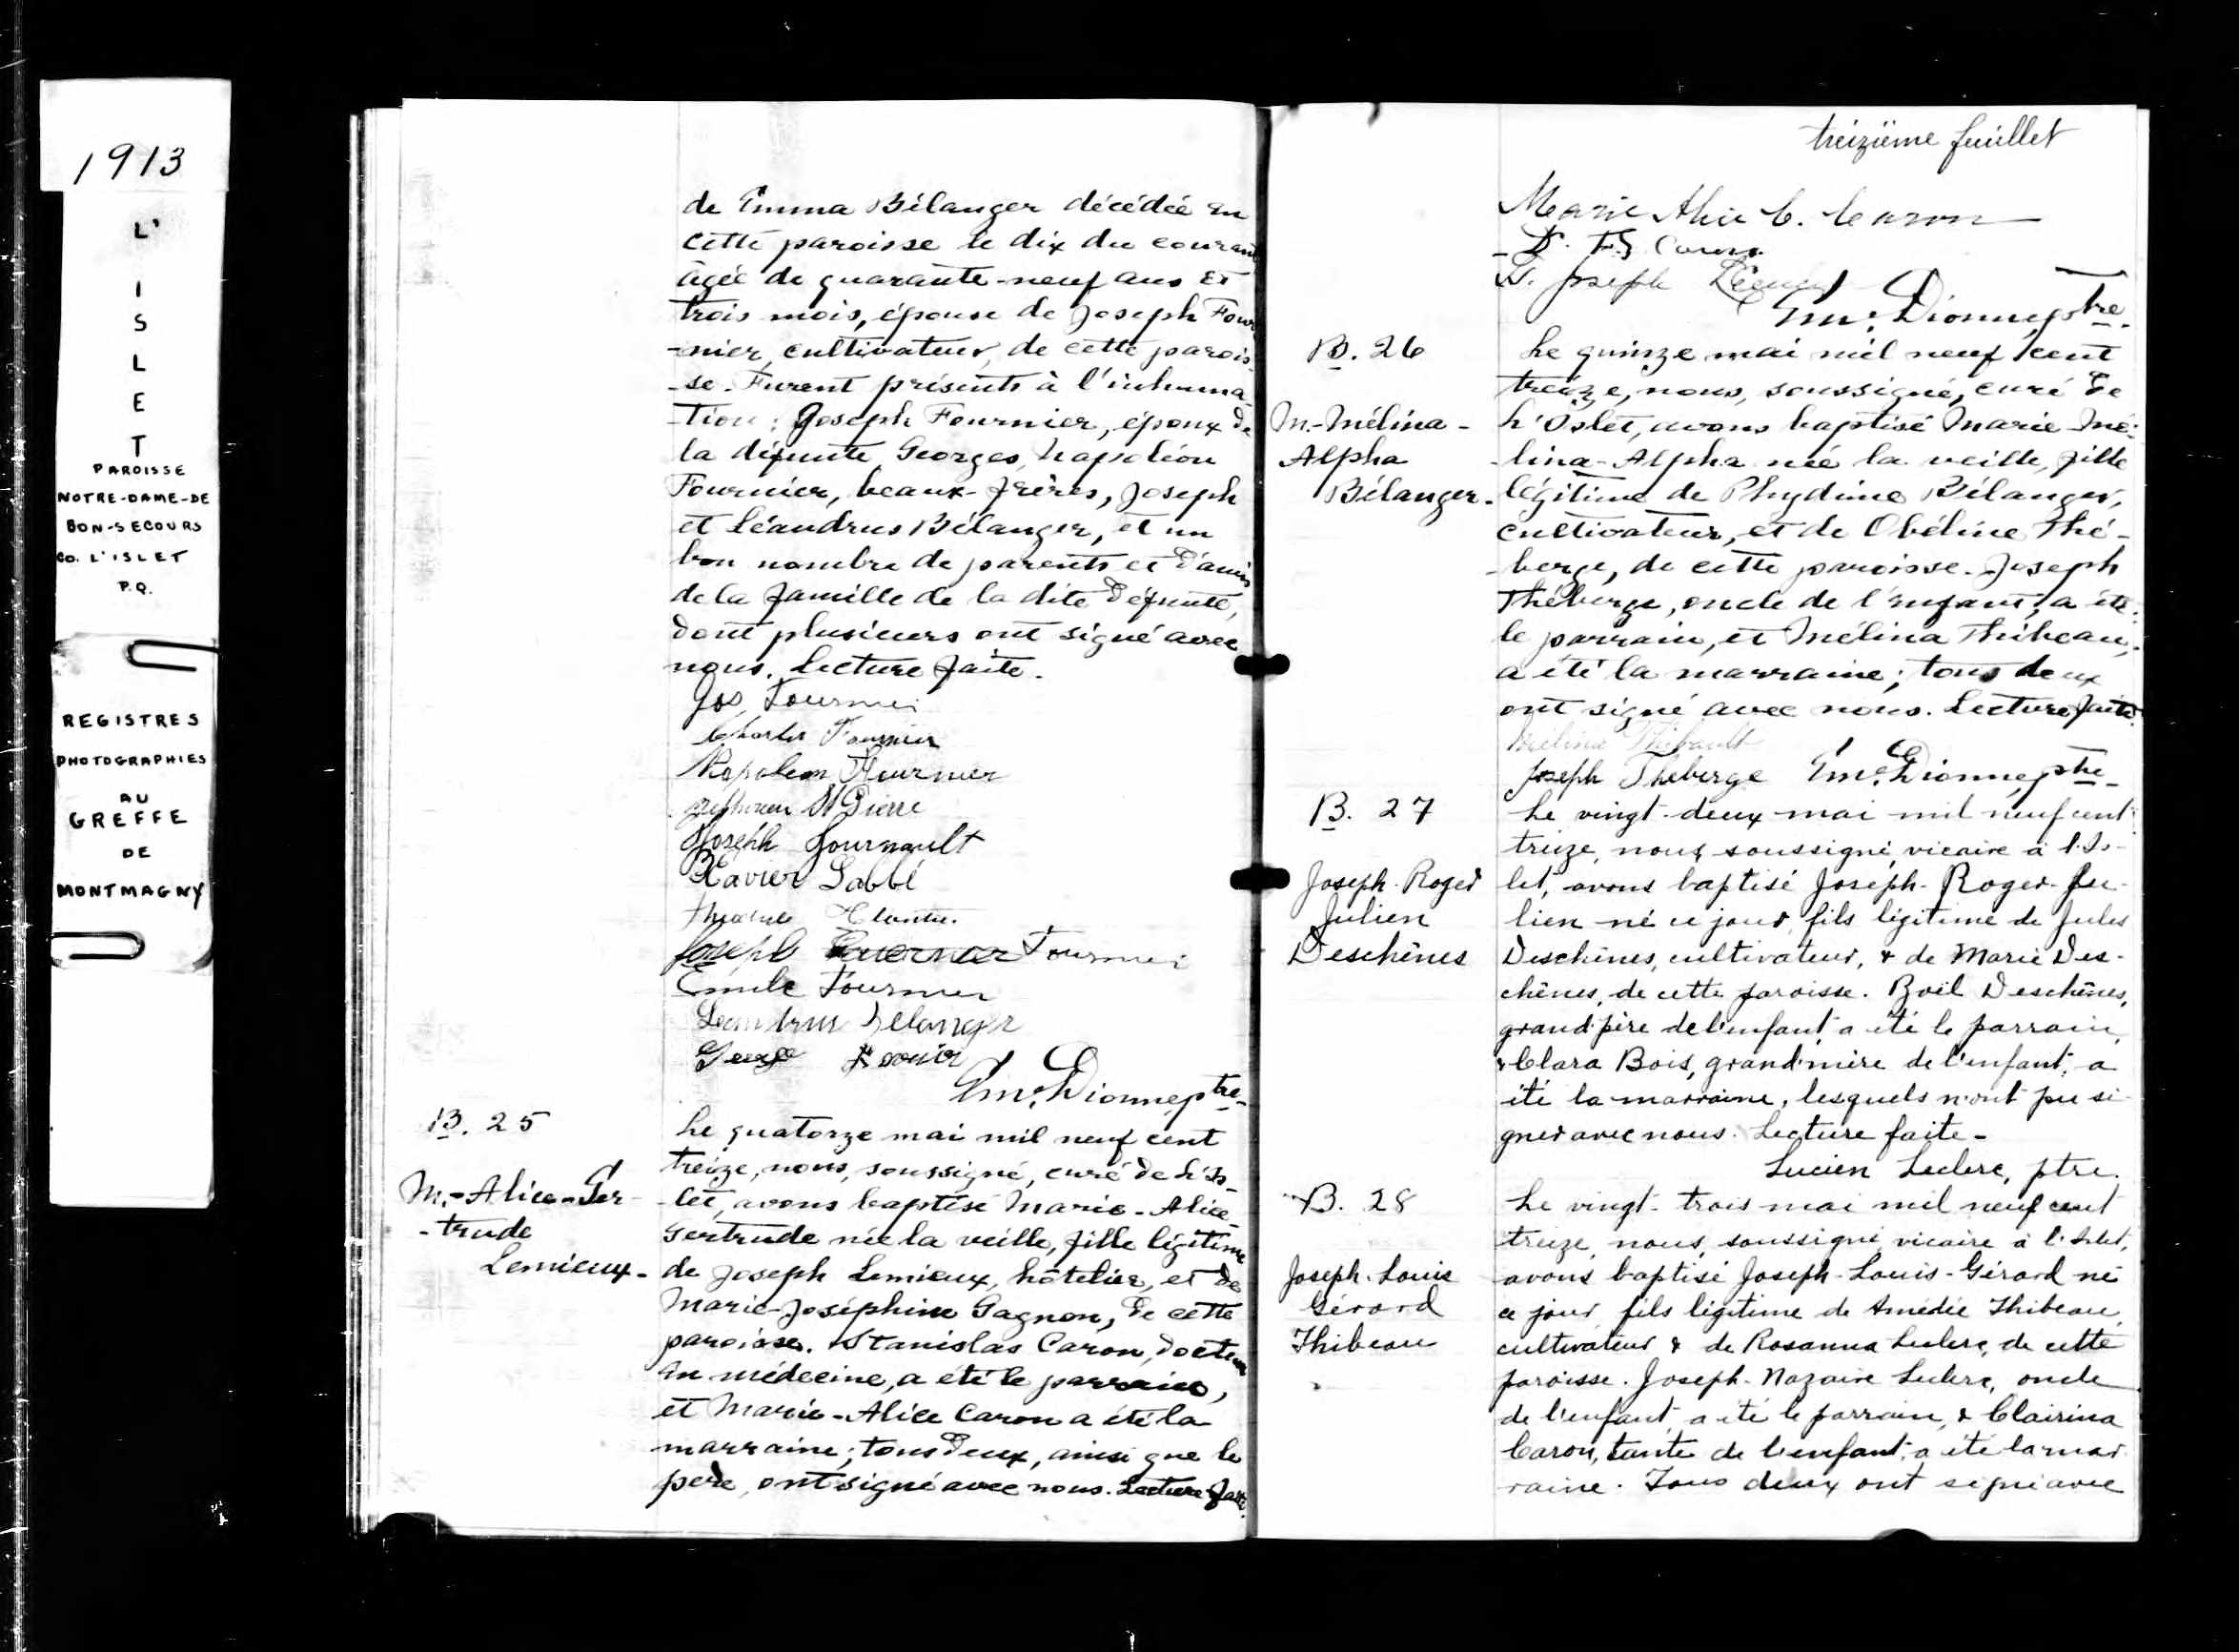 1913
L'
I
S
L
E
T
PAROISSE
NOTRE-DAME-DE
BON-SECOURS
CO. L'ISLET
P.Q.
REGISTRES
PHOTOGRAPHIES
AU
GREFFE
DE
MONTMAGNY
de Emma Bélanger décédée en
cette paroisse le dix du courant
âgée de quarante-neuf ans et
trois mois, épouse de Joseph Four
-nier, cultivateur, de cette parois-
-se. Furent présents à l'inhuma-
-tion: Joseph Fournier, époux de
la défunte, Georges, Napoléon
Fournier, beaux-frères, Joseph
et Léandrus Bélanger, et un
bon nombre de parents et d'amis
de la famille de la dite défunte,
dont plusieurs ont signé avec
nous. Lecture faite.
Jos, Fournier
Charles Fournier
Napoleon Fournier
St Pierre
Joseph
Xavier Labbé
Joseph Fournier
Emile Fournier
Leandrus Belanger
George
Em. Dionne, ptre-
B. 25
M.-Alice-Ger-
-trude
Lemieux-
Le quatorze mai mil neuf cent
treize, nous, soussigné, curé de L'Is-
-let, avons baptisé Marie-Alice-
Gertrude née la veille, fille légitime
de Joseph Lemieux, hôtelier, et de
Marie-Joséphine Gagnon, de cette
paroisse. Stanislas Caron, docteur
en médecine, a été le parrain,
et Marie-Alice Caron a été la
marraine; tous deux, ainsi que le
père, ont signé avec nous. Lecture faite.
treizième feuillet
Marie Alice C. Caron
Caron
Joseph
Em. Dionne, ptre-
B. 26
M.-Mélina-
Alpha
Bélanger-
Le quinze mai mil neuf cent
treize, nous, soussigné, curé de
L'Islet, avons baptisé Marie-Mé-
-lina-Alpha née la veille, fille
légitime de Phydime Bélanger,
cultivateur, et de Obéline Thé-
-berge, de cette paroisse. Joseph
Théberge, oncle de l'enfant, a été
le parrain, et Mélina Thibeau,
a été la marraine; tous deux
ont signé avec nous. Lecture faite.
Melina Thibault
Joseph Theberge Em. Dionne, ptre-
B. 27
Joseph-Roger
Julien
Deschênes
Le vingt-deux mai mil neuf cent
treize, nous soussigné, vicaire à l'Is-
let, avons baptisé Joseph-Roger-Ju-
lien né ce jour, fils légitime de Jules
Deschênes, cultivateur, & de Marie Des-
chênes, de cette paroisse. Zoël Deschênes,
grand'père de l'enfant, a été le parrain,
& Clara Bois, grand'mère de l'enfant, a
été la marraine, lesquels n'ont pu si-
gner avec nous. Lecture faite-
Lucien Leclerc, ptre.
B. 28
Joseph-Louis
Gérard
Thibeau
Le vingt-trois mai mil neuf cent
treize, nous, soussigné, vicaire à l'Islet,
avons baptisé Joseph-Louis-Gérard né
ce jour, fils légitime de Amédée Thibeau,
cultivateur & de Rosanna Leclerc, de cette
paroisse. Joseph-Nazaire Leclerc, oncle
de l'enfant, a été le parrain, & Clairina
Caron, tante de l'enfant, a été la mar-
raine. Tous deux ont signé avec